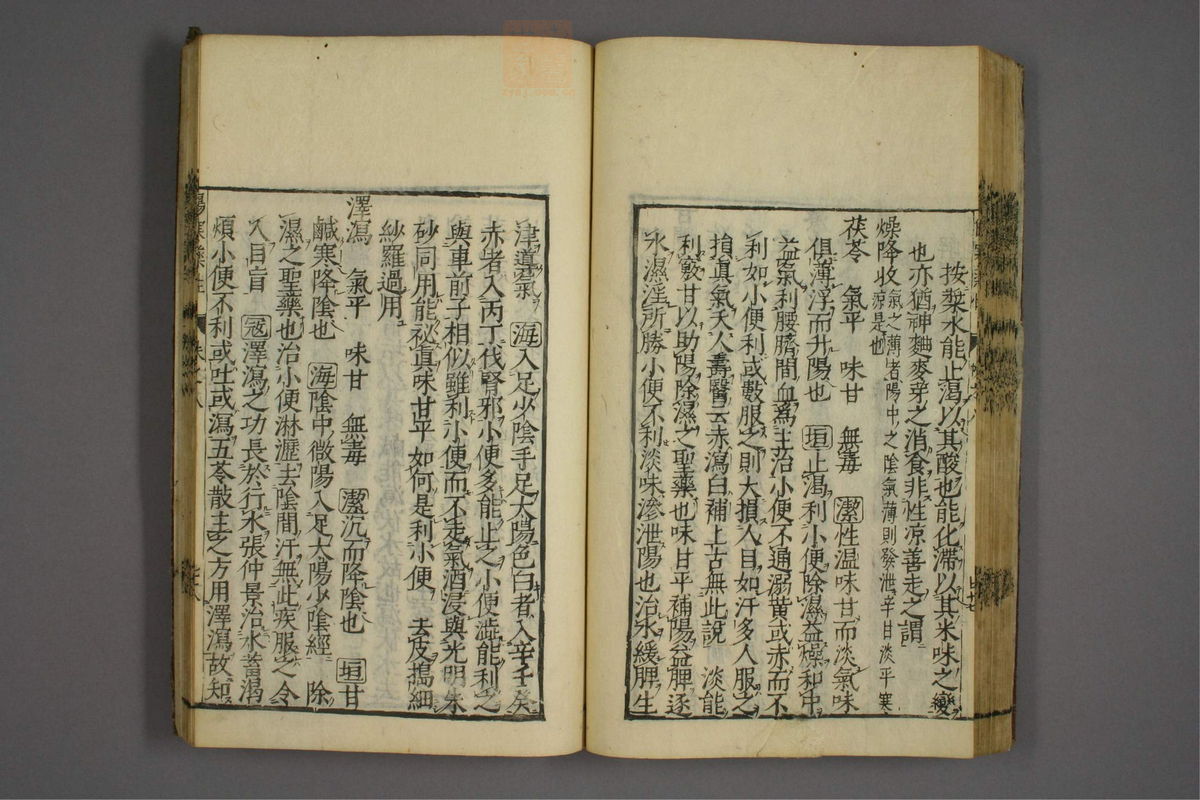 按漿水能止渴以其酸也能化滯以其米味之變
也亦猶神麯麥芽之消食非性涼善走之謂
燥降收氣之薄者陽中之陰氣薄則發泄辛甘淡平寒
涼是也
茯苓　氣平　味甘　無毒　潔性溫味甘而淡氣味
俱薄浮而升陽也　垣止渴利小便除濕益燥和中
益氣利腰臍間血爲主治小便不通溺黃或赤而不
利如小便利或數服之則大損人目如汗多人服之
損眞氣夭人壽醫云赤瀉白補上古無此說　淡能
利竅甘以助陽除濕之聖藥也味甘平補陽益脾逐
水濕淫所勝小便不利淡味滲泄陽也治水緩脾生
津道氣　海入足少陰手足太陽色白者入辛壬癸
赤者入丙丁伐腎邪小便多能止之小便澁能利之
與車前子相似雖利小便而不走氣酒浸與光明朱
砂同用能祕眞味甘平如何是利小便　去皮搗細
紗羅過用
澤瀉　氣平　味甘　無毒　潔沉而降陰也　垣甘
鹹寒降陰也　海陰中微陽入足太陽少陰經　除
濕之聖藥也治小便淋瀝去陰間汗無此疾服之令
人目盲　冦澤瀉之功長於行水張仲景治水蓄渴
煩小便不利或吐或瀉五苓散主之方用澤瀉故知